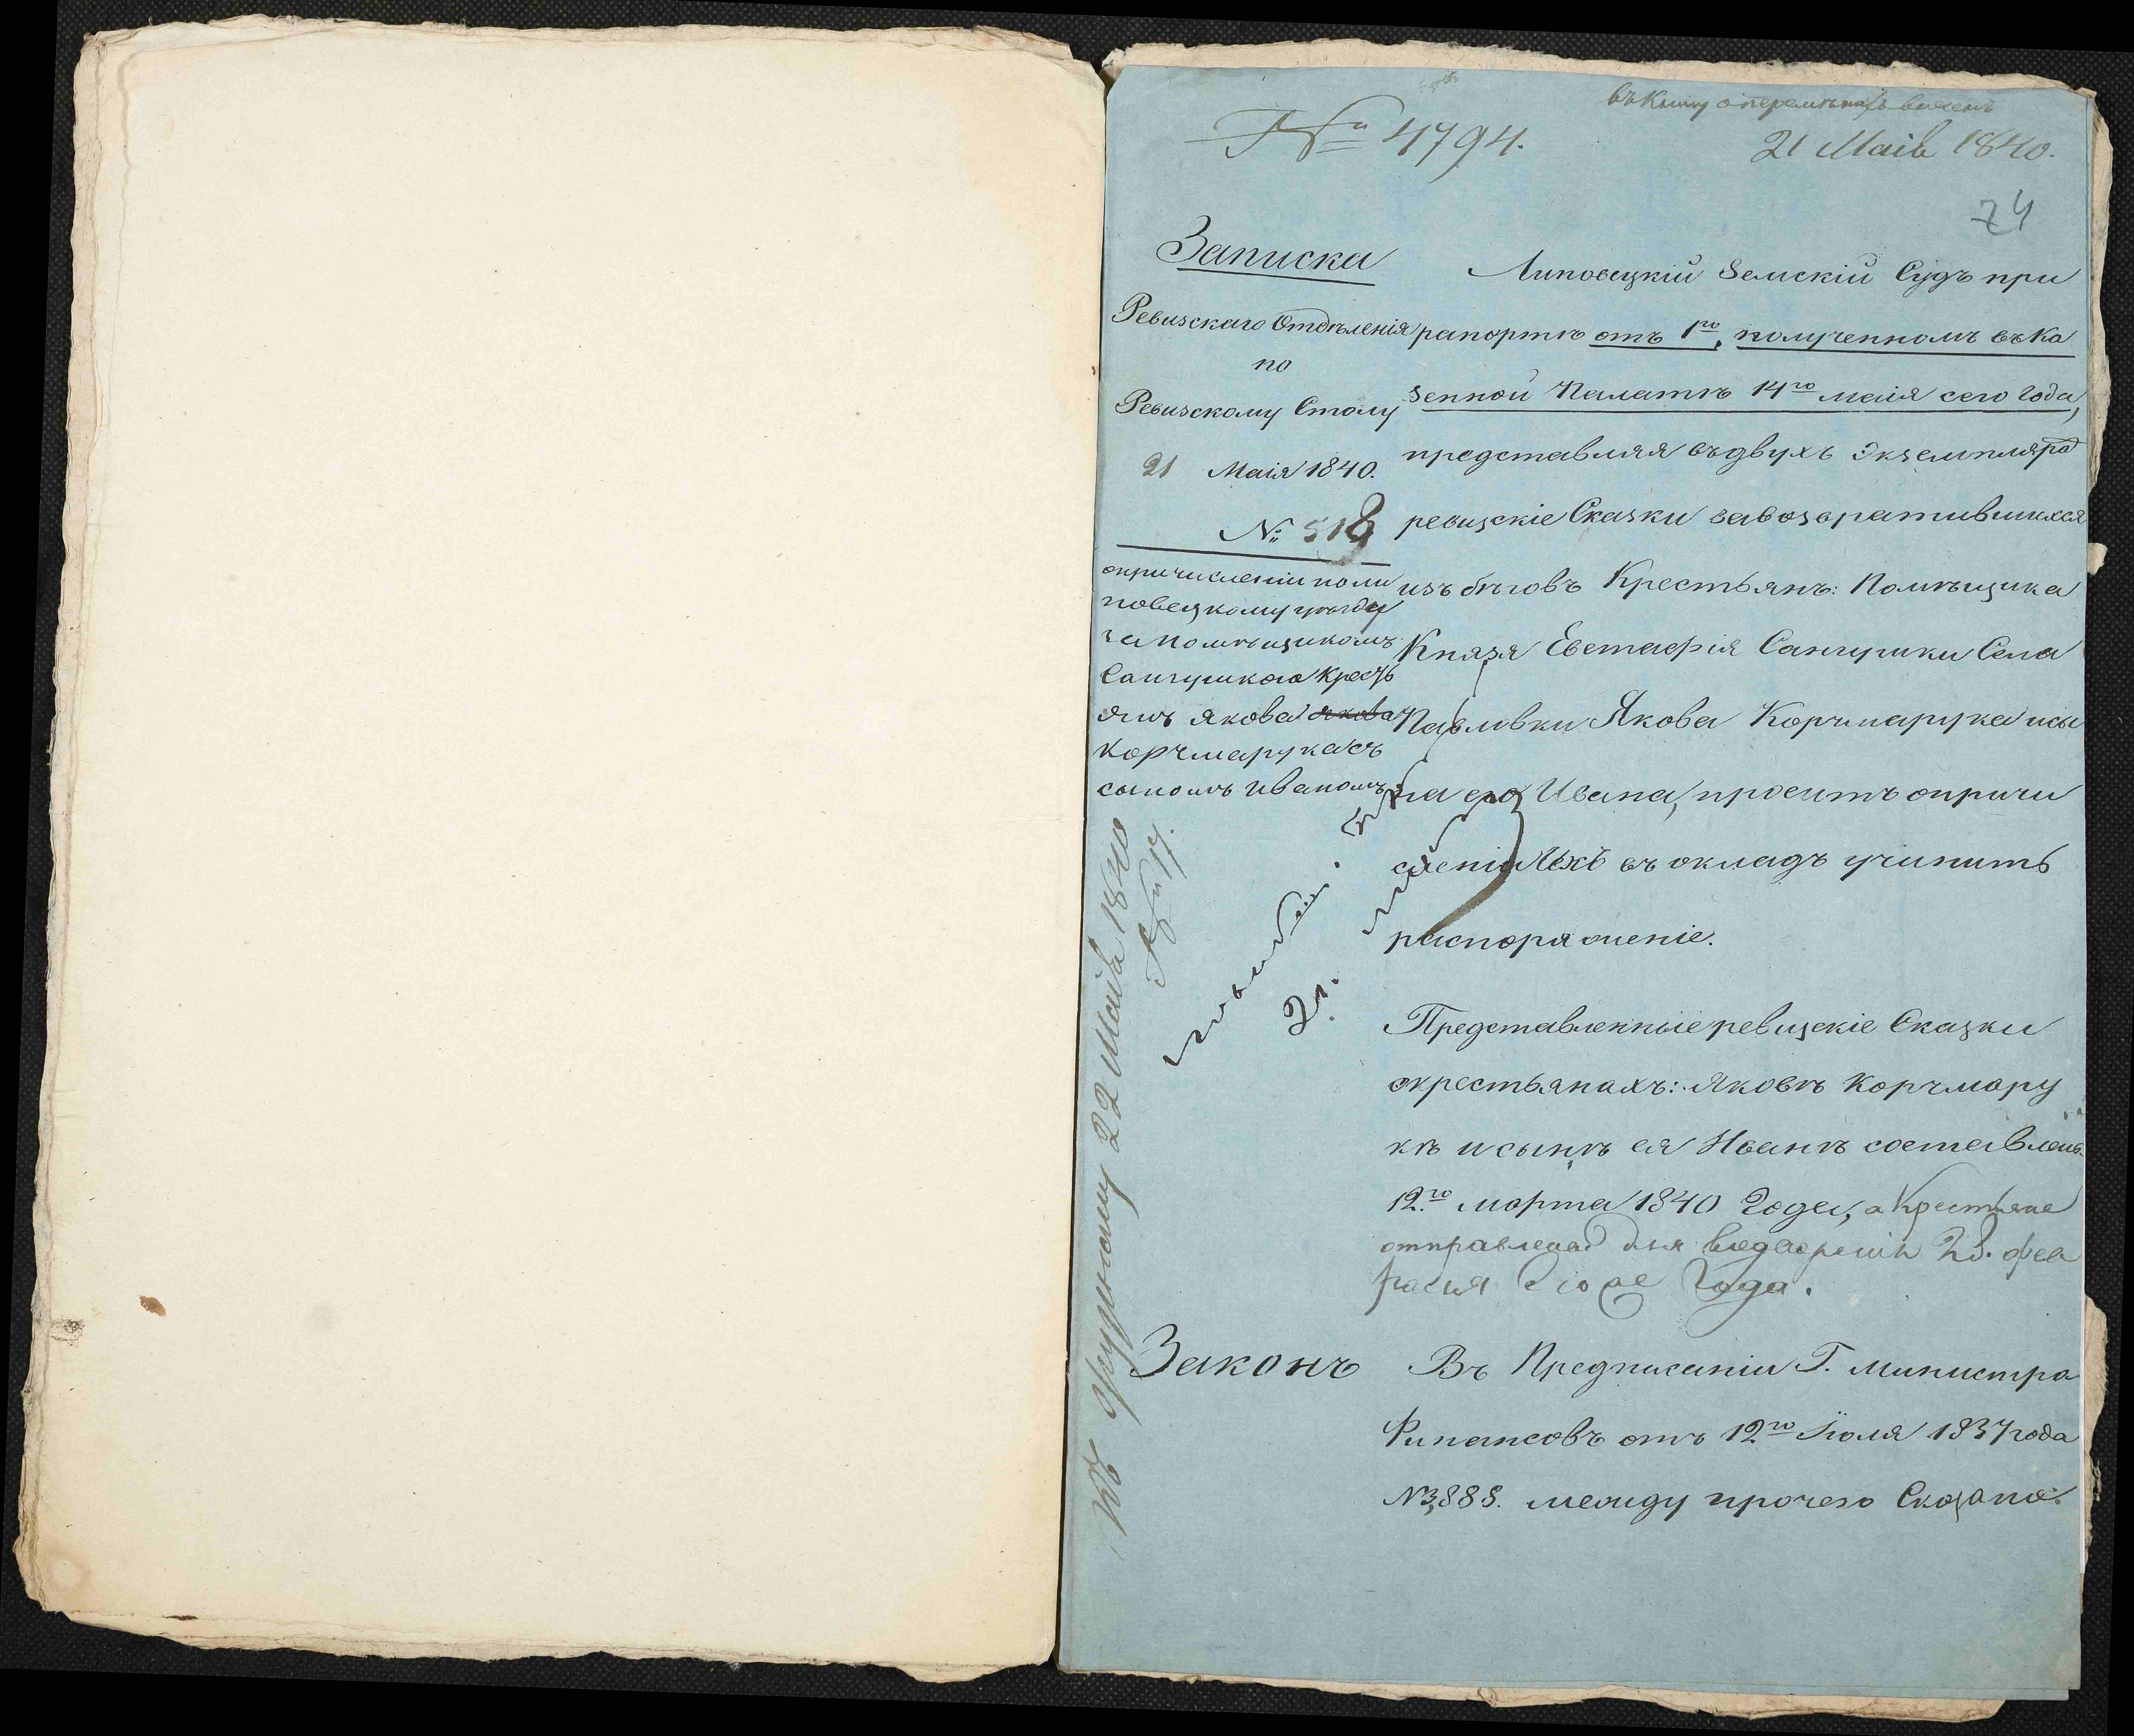 въ Книгу о перемѣнахъ внесенъ
№ 4794.
21 Маія 1840.
74
Записка
Ревизскаго Отдѣленія
по
Ревизскому Столу
21 Маія 1840.
№ 518
о причисленіи по Ли
повецкому уѣзду
за помѣщикомъ
Сангушкою кресть
янъ Якова Якова
Корчмарука съ
сыномъ Иваномъ
Липовецкій Земскій Судъ при
рапортѣ отъ 1го, полученномъ въ Ка
зенной Палатѣ 14го маія сего года,
представляя въ двухъ экземплярахъ
ревизскіе Сказки за возвратившихся
изъ бѣговъ Крестьянъ: Помѣщика
Князя Евстафія Сангушки Села
Павловки Якова Корчмарука и сы
на его Ивана, проситъ о причи
сленіи ихъ въ окладъ учинить
распоряженіе.
2.
Представленные ревизскіе Сказки
о крестьянахъ: Яковѣ Корчмару
кѣ и сынѣ его Иванѣ составлены
12го марта 1840 Года, а Крестьяне
отправлены для водворенія 23. фев
раля сего же Года.
Законъ
Въ Предписаніи Г. Министра
Финансовъ отъ 12го Іюля 1837 года
№ 3,888. между прочего Сказано:
22 Маія 1840
№ 17.